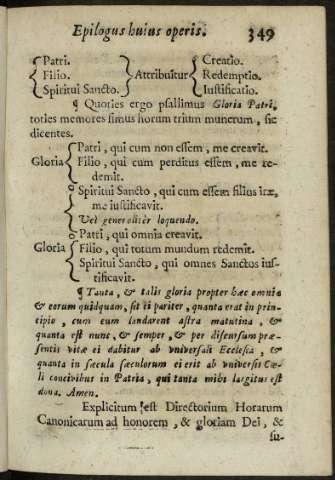 Epilogus huius operis. 349
Patri. Creatio.
Filio. Attribuitur Redemptio.
Spiritui Sancto. Iustificatio.
¶ Quoties ergo psallimus Gloria Patri,
toties memores simus horum trium munerum, sic
dicentes.
Patri, qui cum non essem, me creavit.
Gloria Filio, qui cum perditus essem, me re-
demit.
¶ Spiritui Sancto, qui cum essem filius iræ,
me iustificavit.
Vel generaliter loquendo.
¶ Patri, qui omnia creavit.
Gloria Filio, qui totum mundum redemit.
Spiritui Sancto, qui omnes Sanctos ius-
tificavit.
¶ Tanta, & talis gloria propter hæc omnia
& eorum quidquam, sit ei pariter, quanta erat in prin-
cipio, cum eum laudarent astra matutina, &
quanta est nunc, & semper, & per discursum præ-
sentis vitæ ei dabitur ab vniversali Ecclesia, &
quanta in sæcula sæculorum ei erit ab vniversis Cæ-
li concivibus in Patria, qui tanta mihi largitus est
dona. Amen.
Explicitum est Directorium Horarum
Canonicarum ad honorem, & gloriam Dei, &
su-